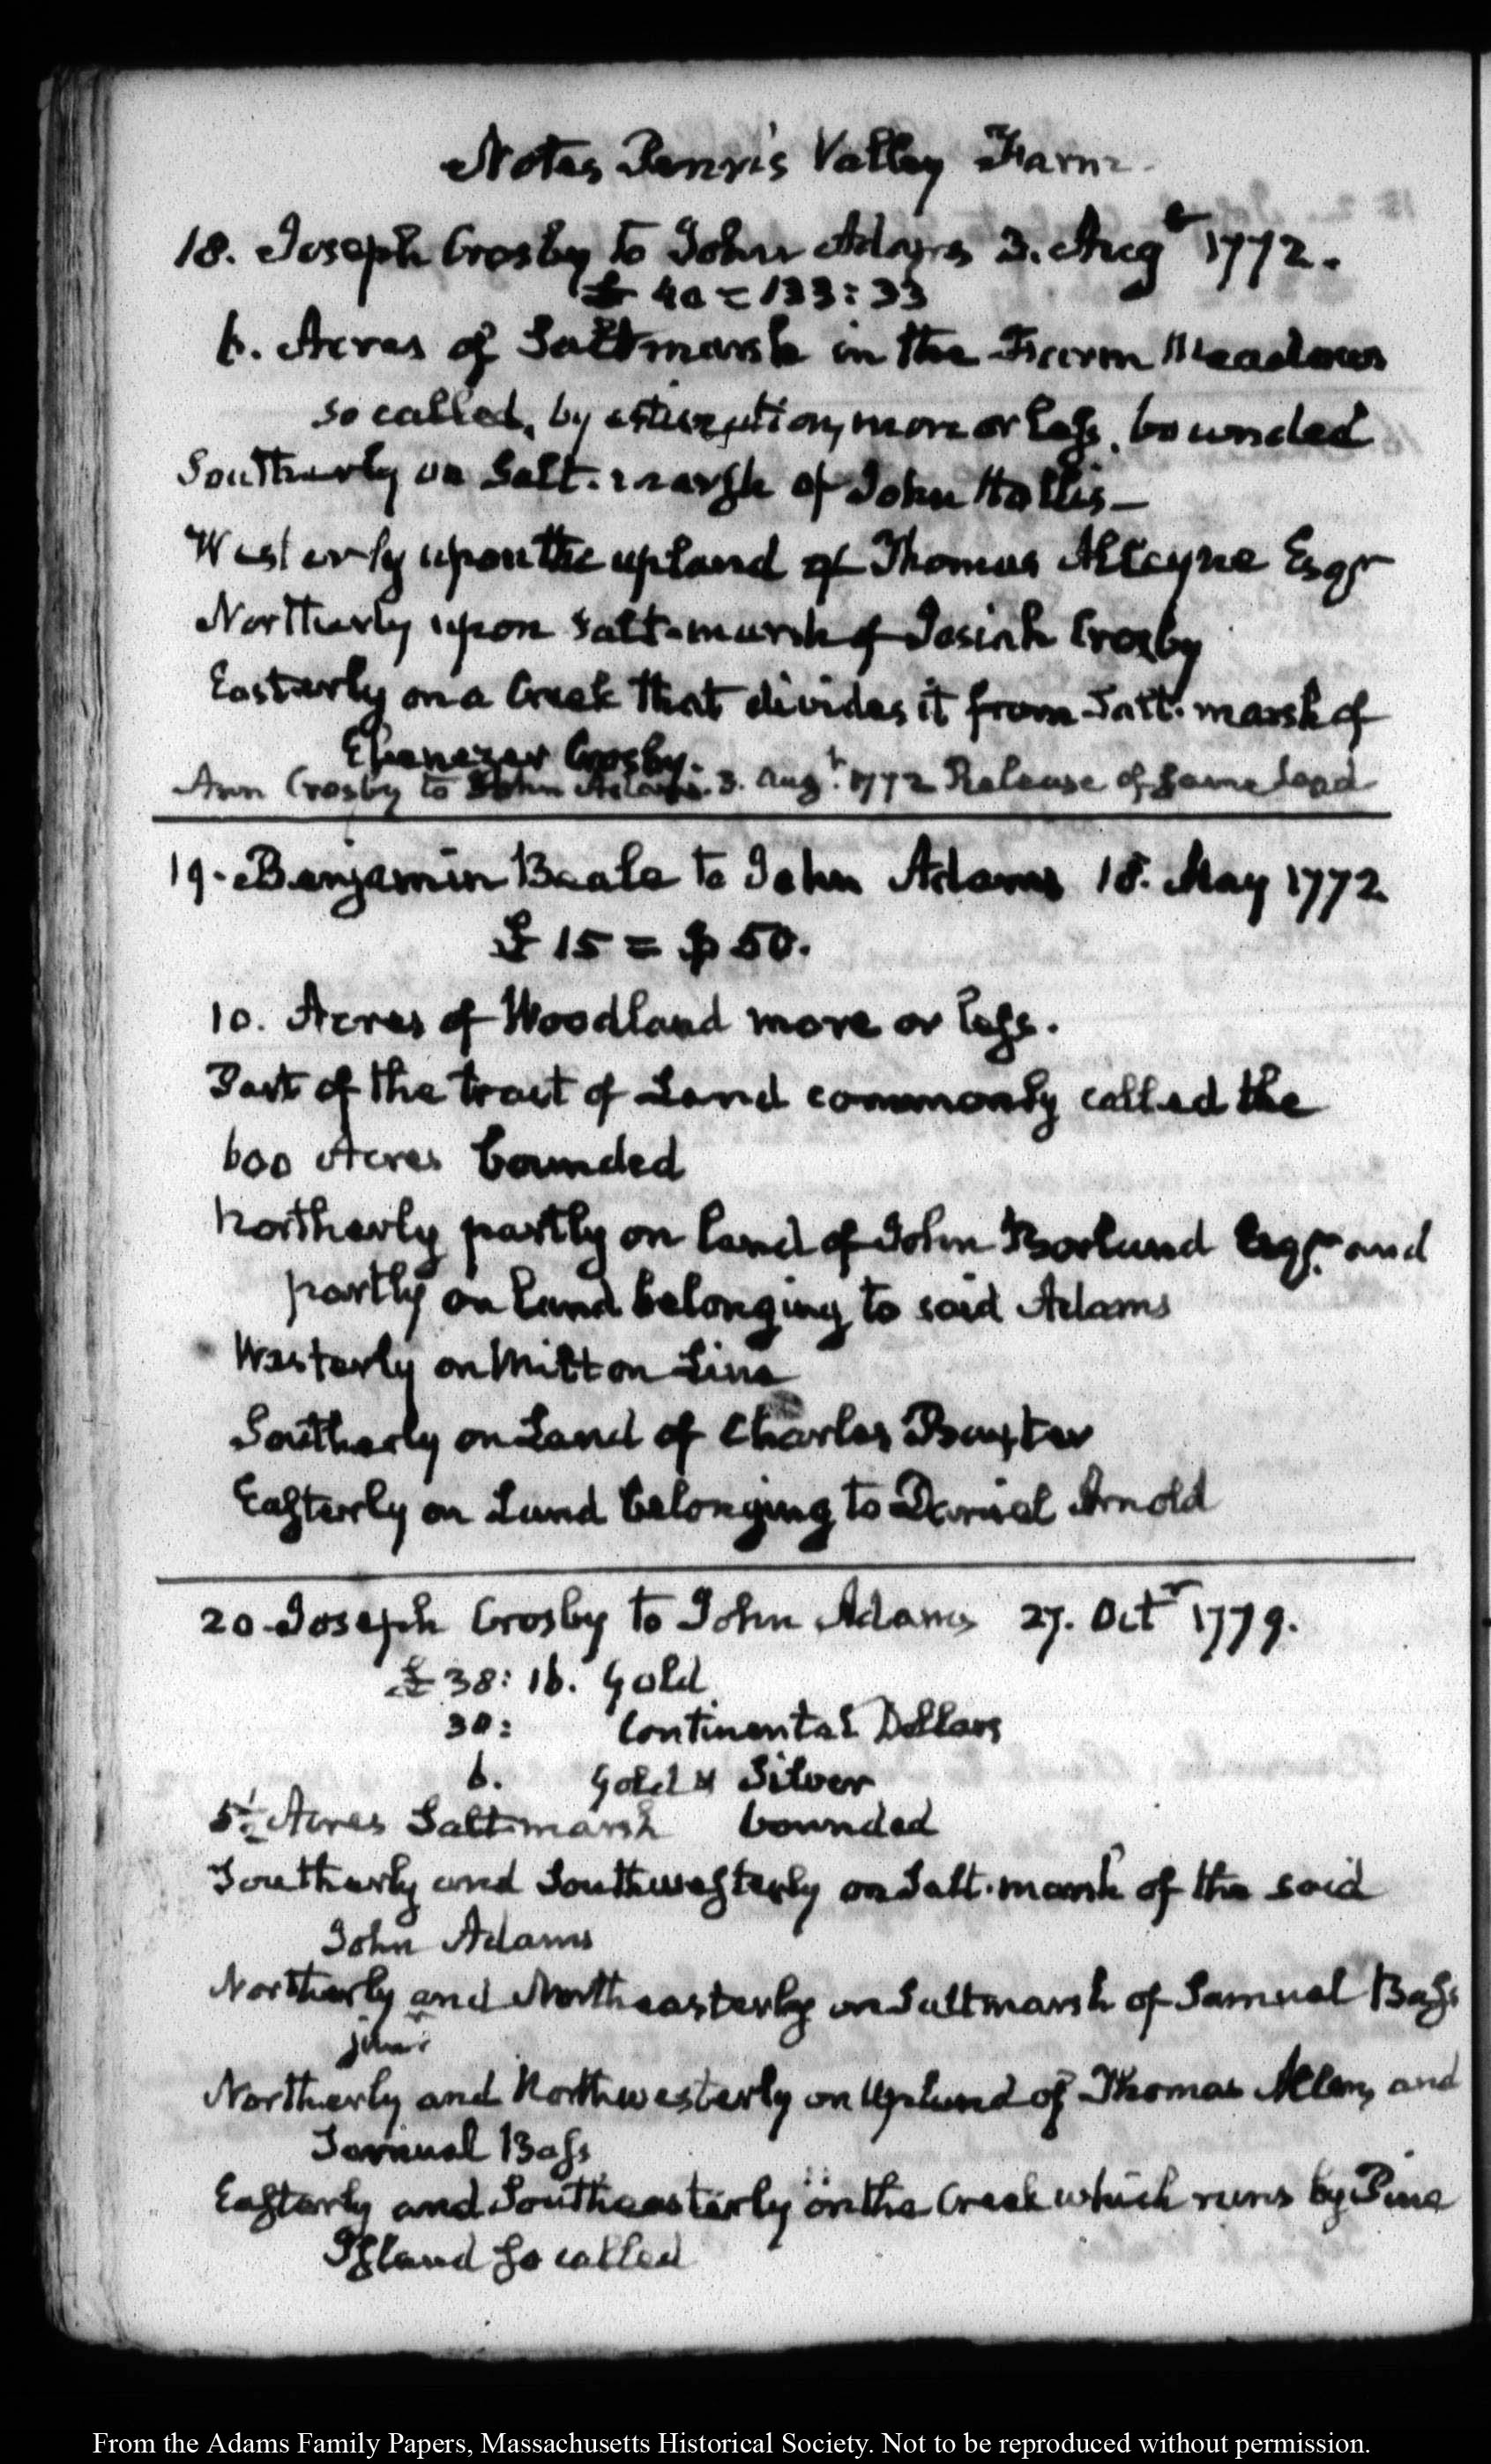 Notes Penn's Valley Farm.
18. Joseph Crosby to John Adams 3. Augt 1772.
£ 40 = 133:33
6. Acres of Saltmarsh in the Farm Meadows
so called, by estimation, more or less, bounded
Southerly on Salt-marsh of John Hollis—
Westerly upon the upland of Thomas Alleyne Esqr
Northerly upon Salt-marsh of Josiah Crosby
Easterly on a Creek that divides it from Salt-marsh of
Ebenezer Crosby.
Ann Crosby to John Adams. 3. Augt. 1772 Release of same land
19. Benjamin Beale to John Adams 18. May 1772
£ 15 = $ 50.
10. Acres of Woodland more or less.
Part of the tract of Land commonly called the
600 Acres bounded
Northerly partly on land of John Borland Esqr. and
partly on land belonging to said Adams
Westerly on Milton Line
Southerly on Land of Charles Baxter
Easterly on Land belonging to Daniel Arnold
20. Joseph Crosby to John Adams 27. Octr 1779.
£ 38: 16. Gold
30: Continental Dollars
6. Gold & Silver
5½ Acres Salt-marsh bounded
Southerly and Southwesterly on Salt-marsh of the said
John Adams
Northerly and Northeasterly on Saltmarsh of Samuel Bass
junr
Northerly and Northwesterly on Upland of Thomas Allen, and
Samuel Bass
Easterly and Southeasterly on the Creek which runs by Pine
Island so called
From the Adams Family Papers, Massachusetts Historical Society. Not to be reproduced without permission.